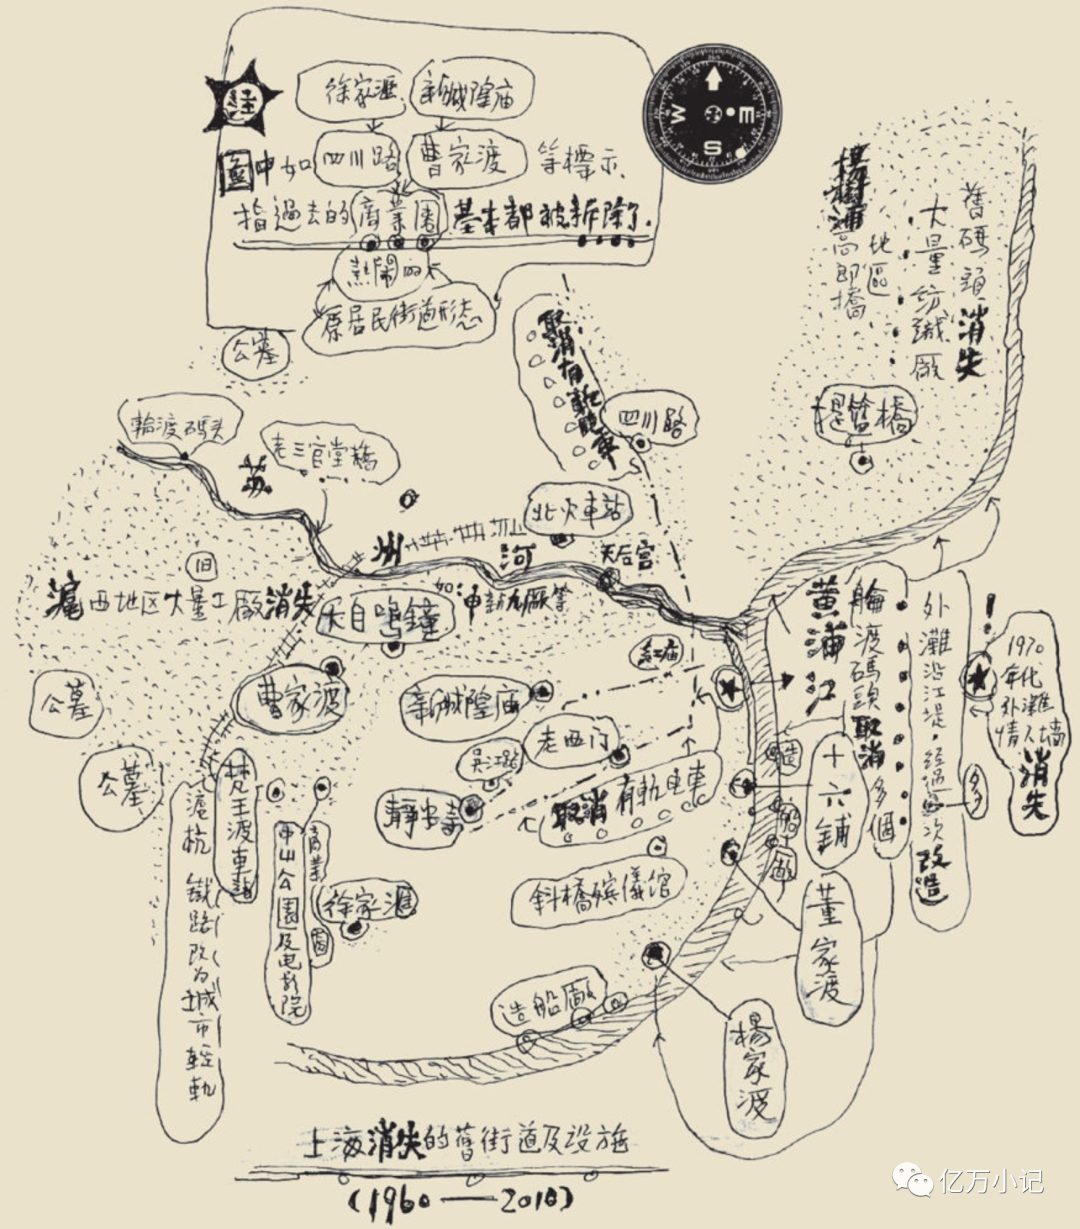 註
徐家滙
新城隍庙
圖中如
四川路
曹家渡
等標示
指過去的
商業圈
基本都被拆除了.
热闹的
原居民街道形态
公墓
W
E
S
楊樹浦
高郎橋
地區
大量紡織廠
舊碼頭消失
取消有軌電車
四川路
提籃橋
輪渡码头
老三官堂橋
苏
州
河
北火車站
天后宫
旧
滬西地区大量工廠消失
如申新九廠等
天自鳴鐘
曹家渡
公墓
公墓
新城隍庙
虹庙
老西门
吴江路
靜安寺
取消有軌电車
黄浦江
輪渡碼頭取消多個
外灘沿江堤·經過多次改造
1970
年代
外灘
情人墙
消失
十六鋪
造
船
廠
梵王渡車站
滬杭鐵路改为城市輕軌
中山公園及电影院
商業
圈
徐家滙
斜橋殡儀馆
董家渡
造船廠
楊家渡
上海消失的舊街道及设施
(1960——2010)
亿万小记